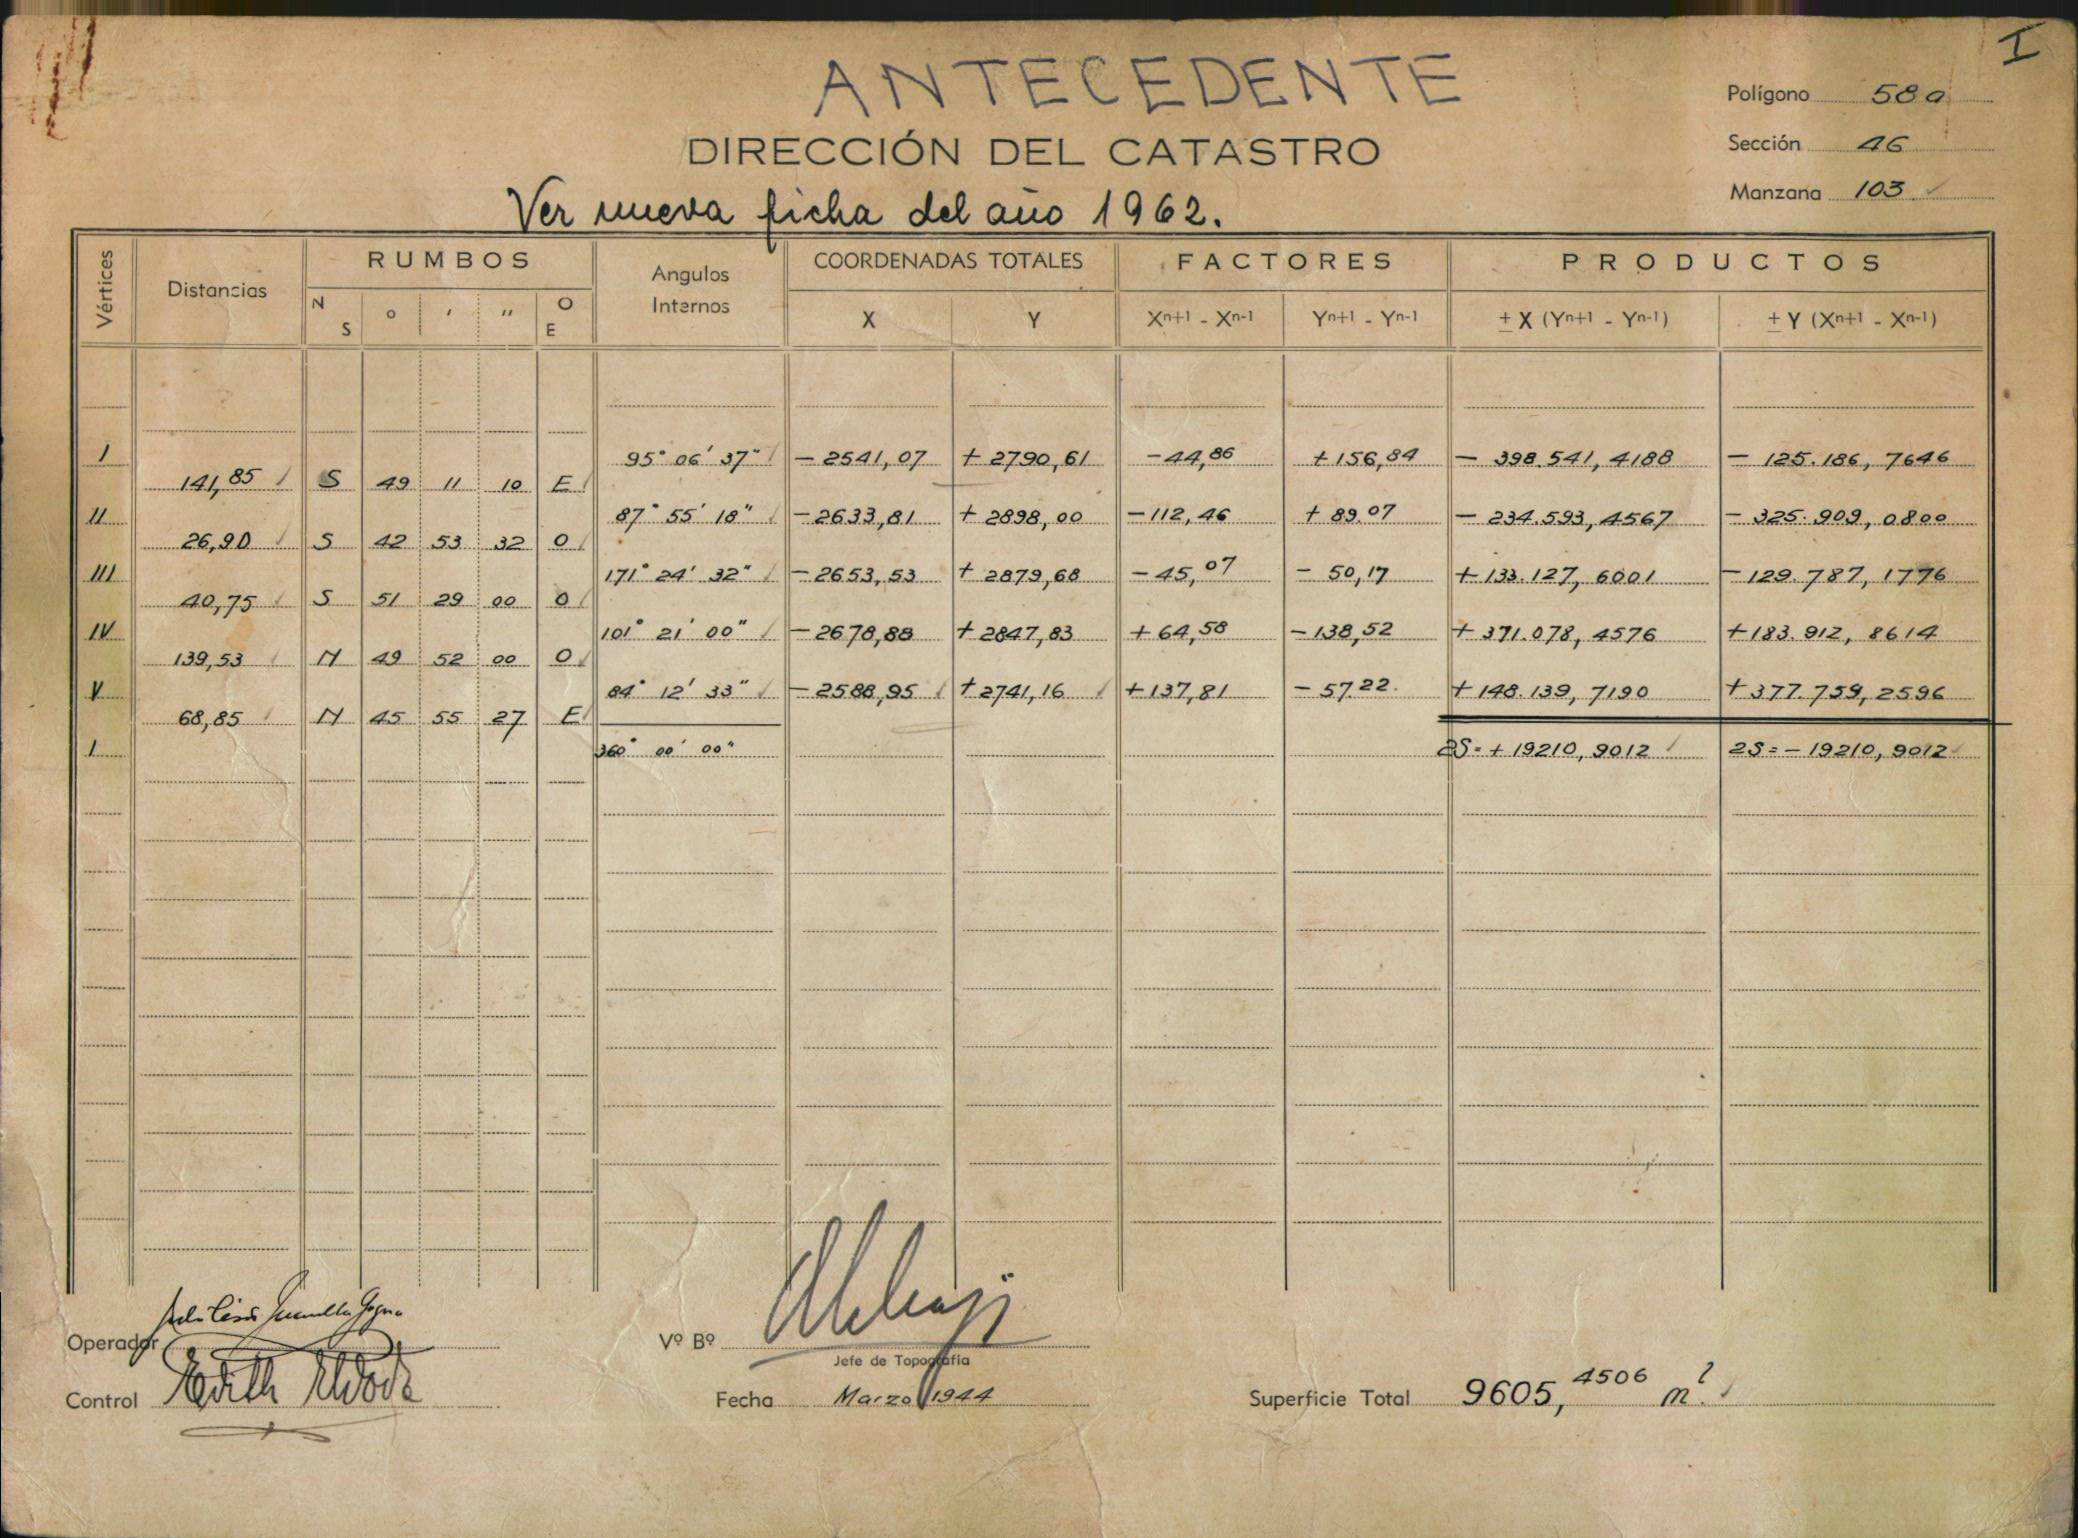 I
ANTECEDENTE
Polígono 58a
DIRECCIÓN DEL CATASTRO
Sección 46
Manzana 103 ✓
Ver nueva ficha del año 1962.
Vértices Distancias RUMBOS Angulos Internos COORDENADAS TOTALES FACTORES PRODUCTOS
N S o ' " O E X Y Xn+1 - Xn-1 Yn+1 - Yn-1 ± X (Yn+1 - Yn-1) ± Y (Xn+1 - Xn-1)
I 95° 06' 37" ✓ - 2541,07 + 2790,61 -44,86 +156,84 - 398.541,4188 - 125.186,7646
141,85 ✓ S 49 11 10 E ✓
II 87° 55' 18" ✓ -2633,81 + 2898,00 -112,46 + 89.07 - 234.593,4567 - 325.909,0800
26,90 ✓ S 42 53 32 O ✓
III 171° 24' 32" ✓ -2653,53 + 2879,68 -45,07 - 50,17 +133.127,6001 -129.787,1776
40,75 ✓ S 51 29 00 O ✓
IV 101° 21' 00" ✓ -2678,88 +2847,83 +64,58 -138,52 +371.078,4576 +183.912,8614
139,53 ✓ N 49 52 00 O ✓
V 84° 12' 33" ✓ -2588,95 ✓ +2741,16 ✓ +137,81 - 57.22 +148.139,7190 +377.759,2596
68,85 ✓ N 45 55 27 E ✓
I 360° 00' 00" 2S=+19210,9012 ✓ 2S=-19210,9012 ✓
Operador
Vº Bº
Jefe de Topografía
Control Edith
Fecha Marzo 1944
Superficie Total 9605,4506 m² ✓